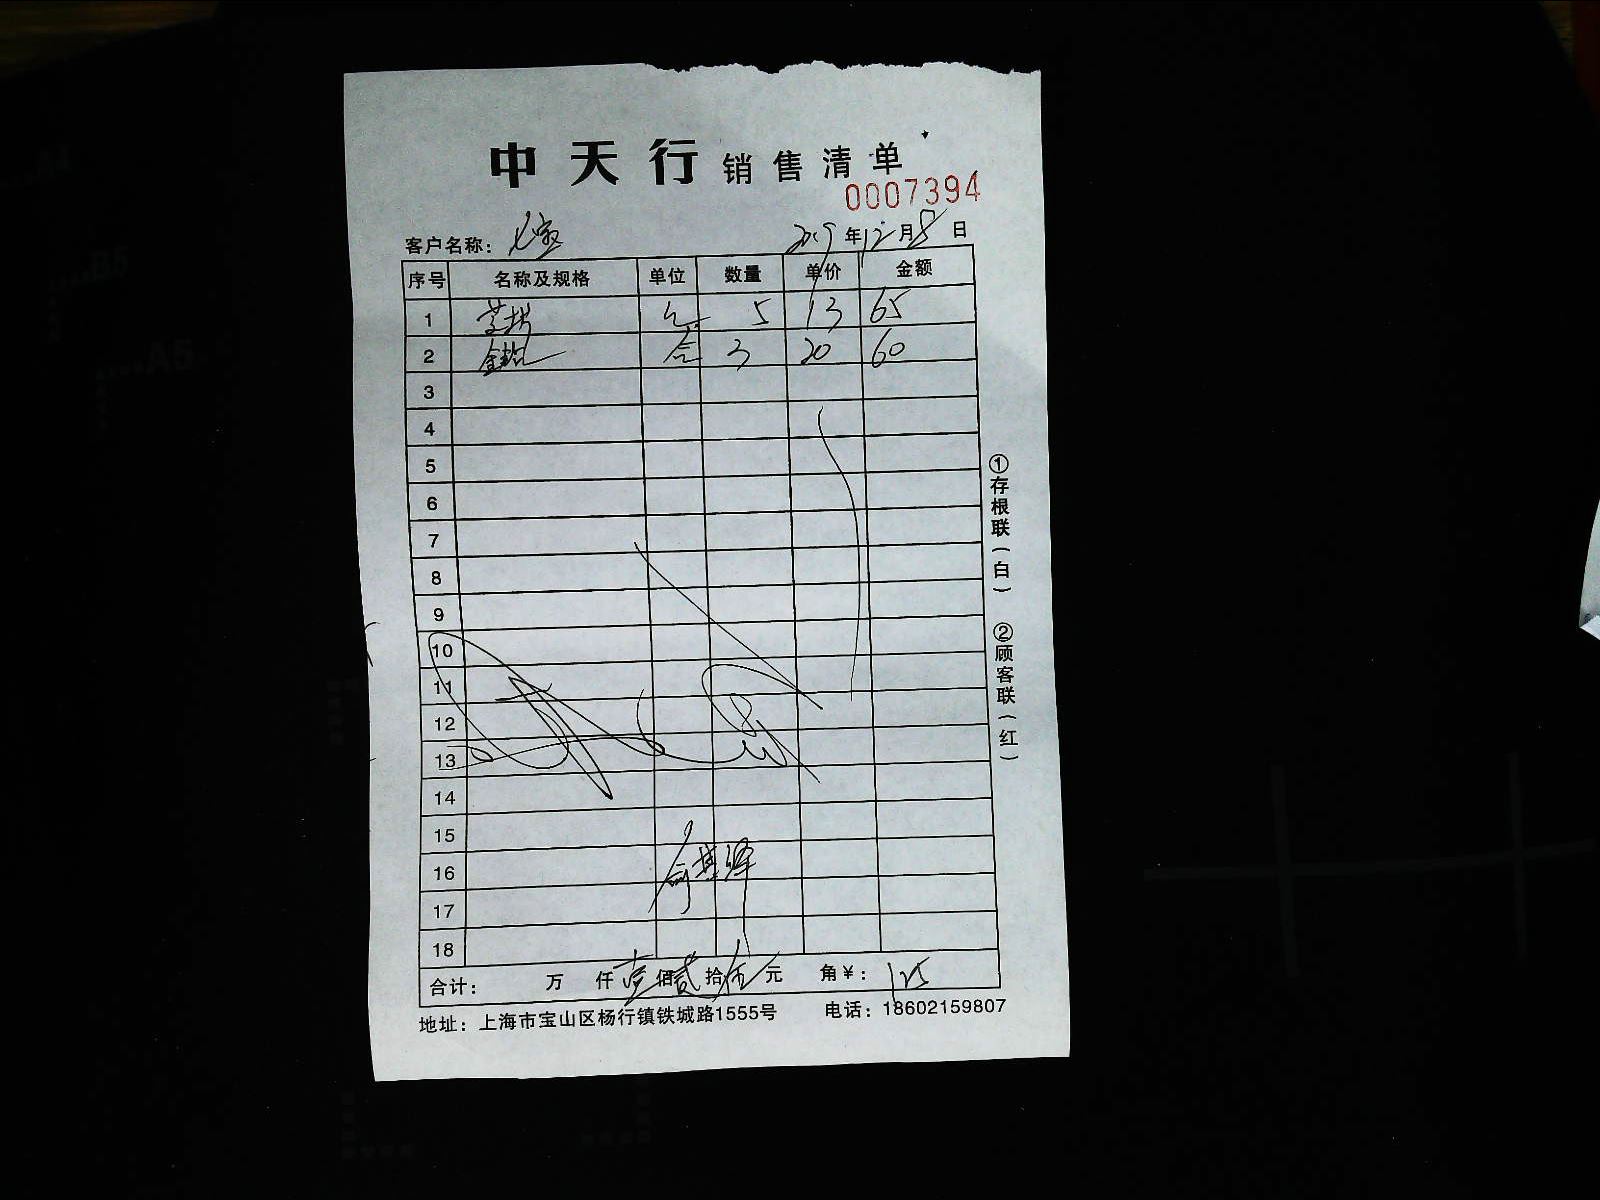 中天行 销售清单
0007394
客户名称：
2019年12月8日
序号 名称及规格 单位 数量 单价 金额
1 5 13 65
2 3 20 60
3
4
5
6
7
8
9
10
11
12
13
14
15
16
17
18
合计： 万 仟 壹佰 贰拾 伍元 角 ¥：125
地址：上海市宝山区杨行镇铁城路1555号 电话：18602159807
①存根联（白） ②顾客联（红）